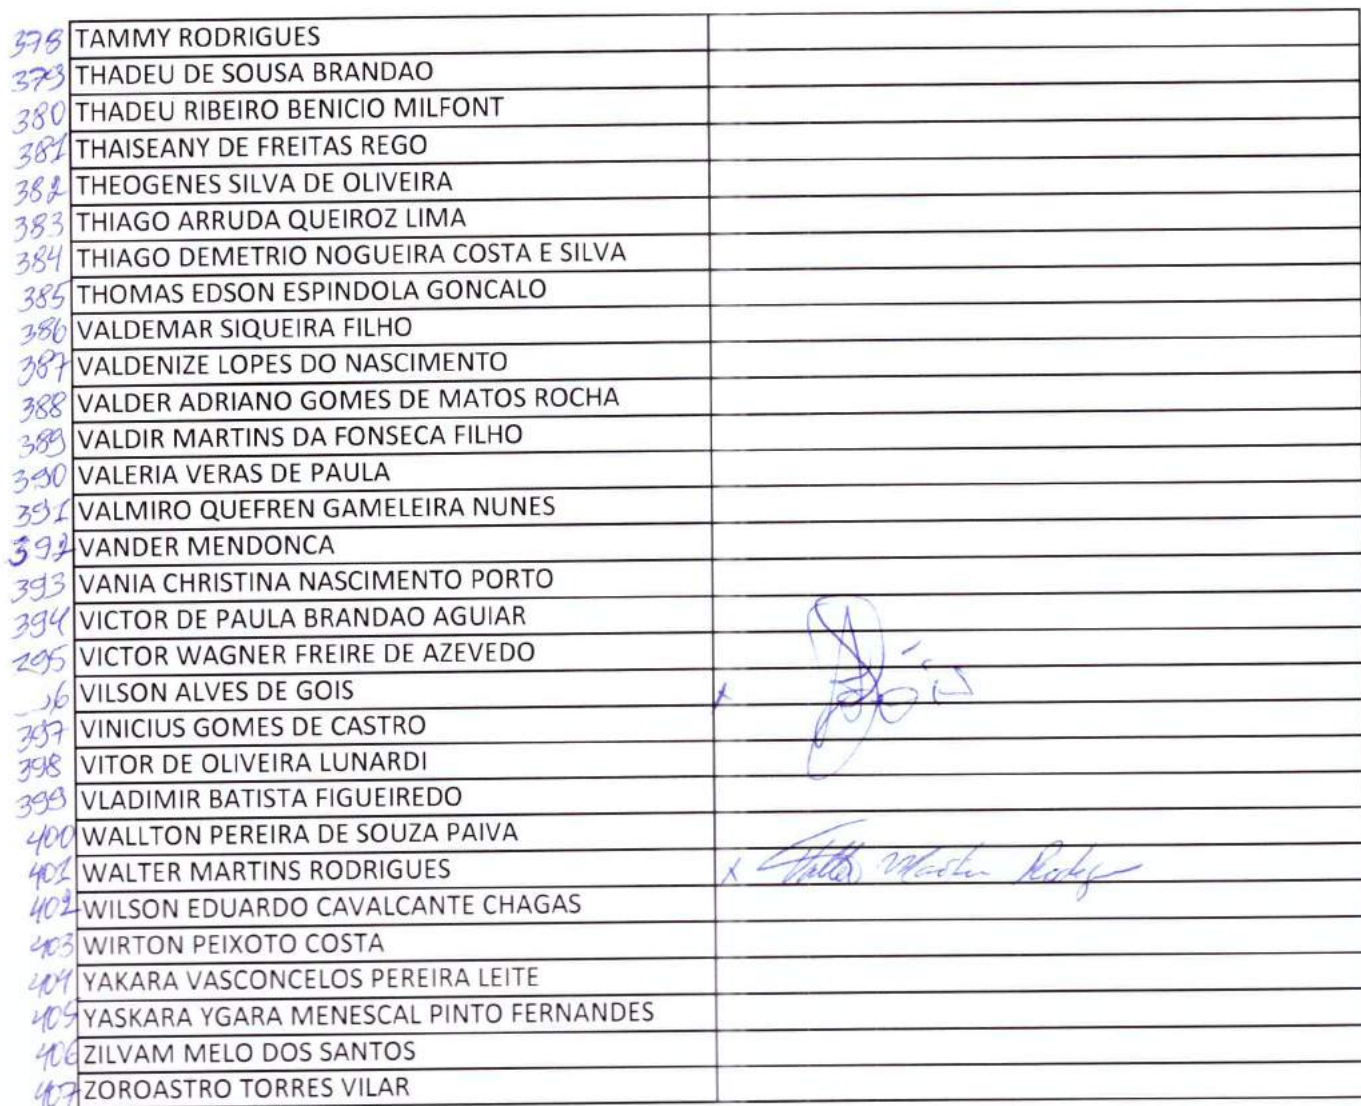 378 TAMMY RODRIGUES
379 THADEU DE SOUSA BRANDAO
380 THADEU RIBEIRO BENICIO MILFONT
381 THAISEANY DE FREITAS REGO
382 THEOGENES SILVA DE OLIVEIRA
383 THIAGO ARRUDA QUEIROZ LIMA
384 THIAGO DEMETRIO NOGUEIRA COSTA E SILVA
385 THOMAS EDSON ESPINDOLA GONCALO
386 VALDEMAR SIQUEIRA FILHO
387 VALDENIZE LOPES DO NASCIMENTO
388 VALDER ADRIANO GOMES DE MATOS ROCHA
389 VALDIR MARTINS DA FONSECA FILHO
390 VALERIA VERAS DE PAULA
391 VALMIRO QUEFREN GAMELEIRA NUNES
392 VANDER MENDONCA
393 VANIA CHRISTINA NASCIMENTO PORTO
394 VICTOR DE PAULA BRANDAO AGUIAR
295 VICTOR WAGNER FREIRE DE AZEVEDO
6 VILSON ALVES DE GOIS x
397 VINICIUS GOMES DE CASTRO
398 VITOR DE OLIVEIRA LUNARDI
399 VLADIMIR BATISTA FIGUEIREDO
400 WALLTON PEREIRA DE SOUZA PAIVA
401 WALTER MARTINS RODRIGUES x
402 WILSON EDUARDO CAVALCANTE CHAGAS
403 WIRTON PEIXOTO COSTA
404 YAKARA VASCONCELOS PEREIRA LEITE
405 YASKARA YGARA MENESCAL PINTO FERNANDES
406 ZILVAM MELO DOS SANTOS
407 ZOROASTRO TORRES VILAR